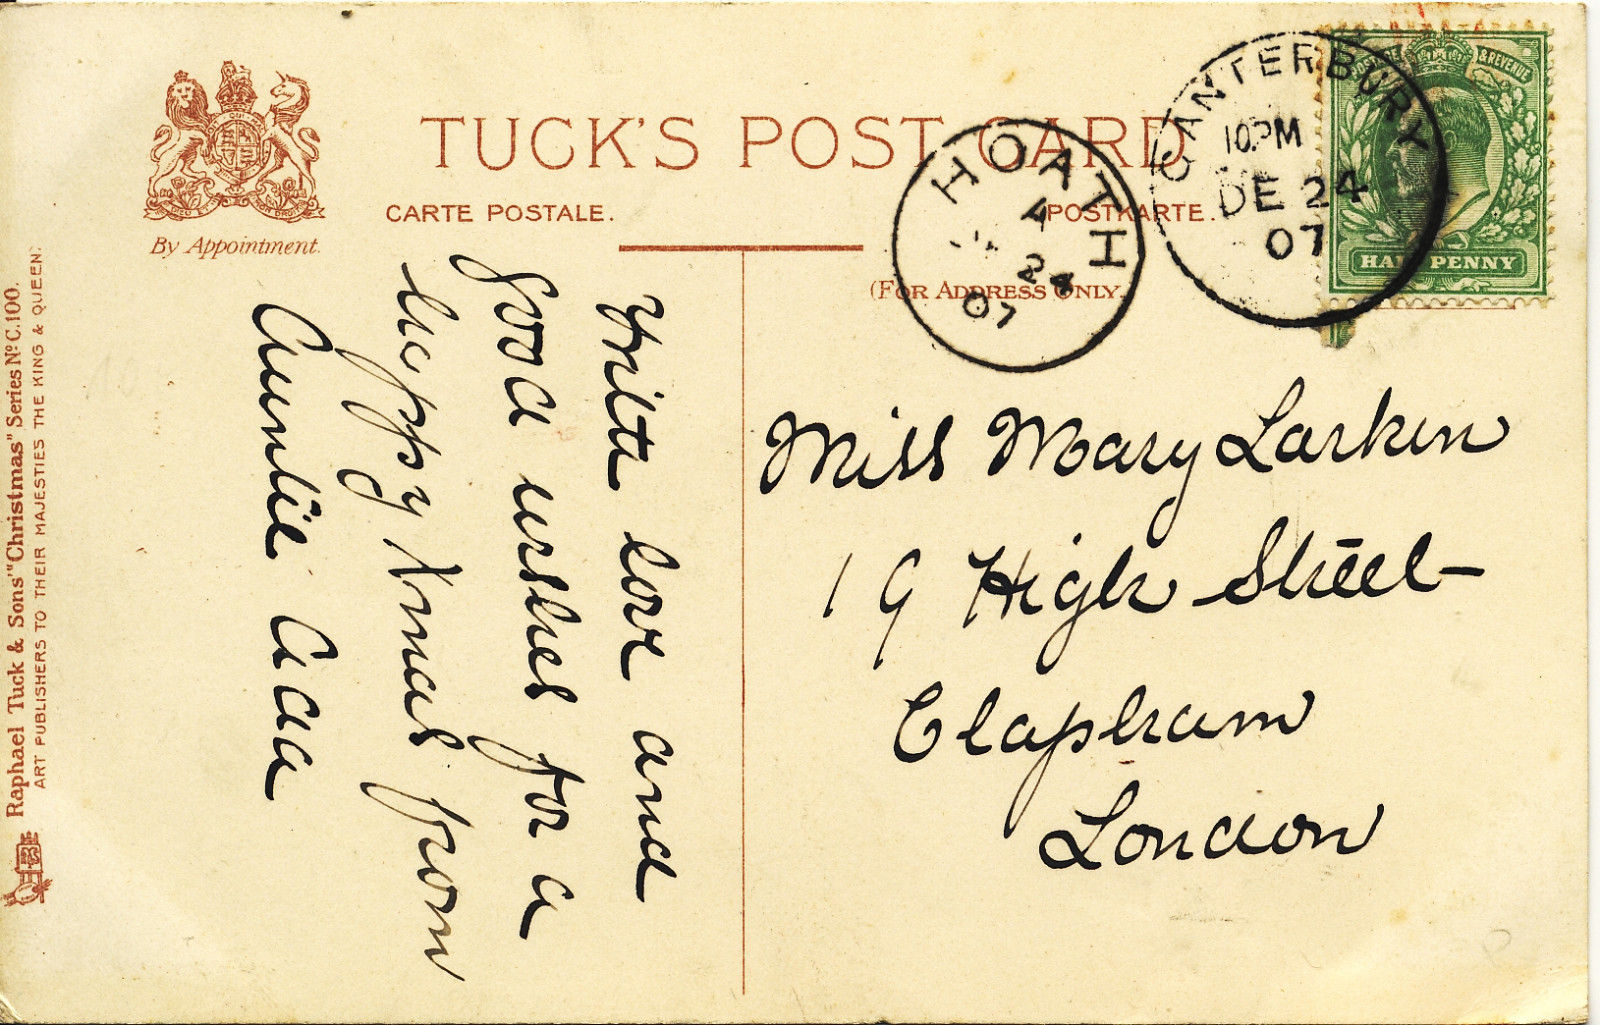 TUCK'S POST CARD
CARTE POSTALE.
POSTKARTE.
By Appointment.
(FOR ADDRESS ONLY.)
HOATH
24
07
CANTERBURY
10.PM
DE 24
07
& REVENUE
HALFPENNY
With love and
good wishes for a
happy Xmas from
Auntie Ada
Miss Mary Larkin
19 High Street
Clapham
London
Raphael Tuck & Sons' "Christmas" Series No. C.100.
ART PUBLISHERS TO THEIR MAJESTIES THE KING & QUEEN.